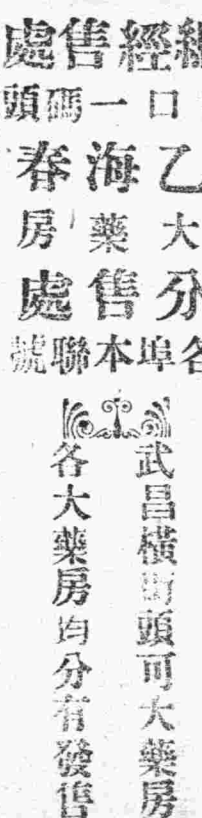 經售處
口一碼頭
乙海春
大藥房
分售處
各埠本聯號
武昌橫街頭可大藥房
各大藥房均分有發售